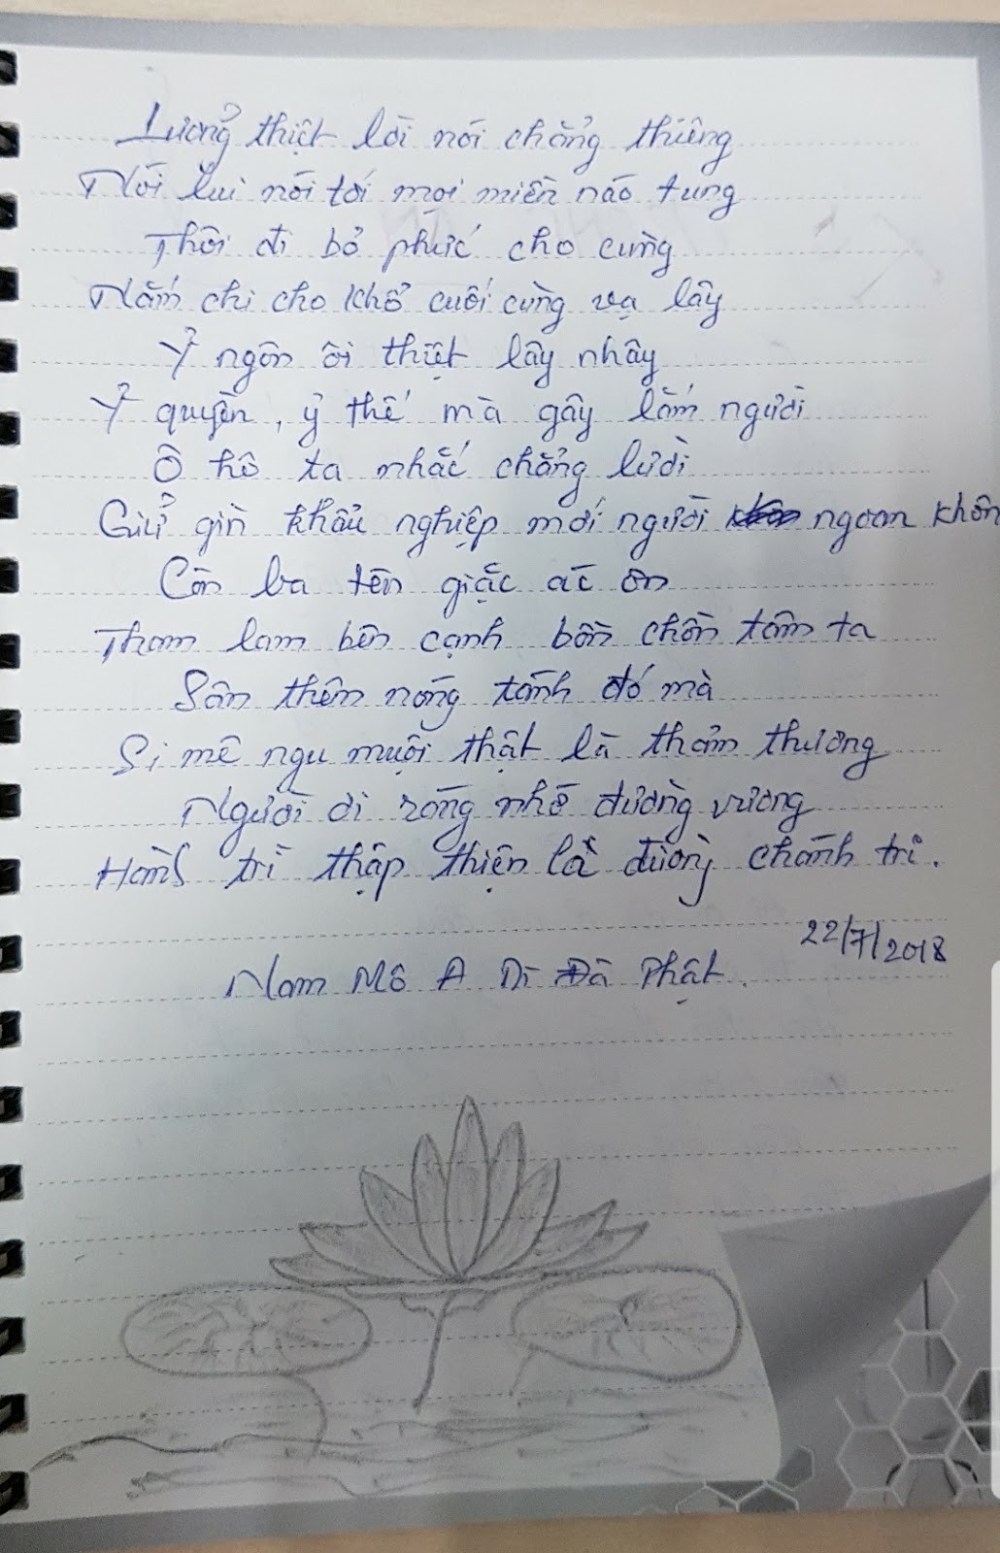 Lưỡng thiệt lời nói chẳng thiêng
Nói lui nói tới mọi miền náo tung
Thôi đi bỏ phứt cho cùng
Nắm chi cho khổ cuối cùng vạ lây
Ỷ ngôn ôi thiệt lây nhây
Ỷ quyền, ỷ thế mà gây lắm người
Ô hô ta nhắc chẳng lười
Giữ gìn khẩu nghiệp mới người ngoan khôn
Còn ba tên giặc ác ôn
Tham lam bên cạnh bồn chồn tâm ta
Sân thêm nóng tánh đó mà
Si mê ngu muội thật là thảm thương
Người ơi ráng nhớ đường vương
Hành trì thập thiện là đường chánh tri.
22/7/2018
Nam Mô A Di Đà Phật.